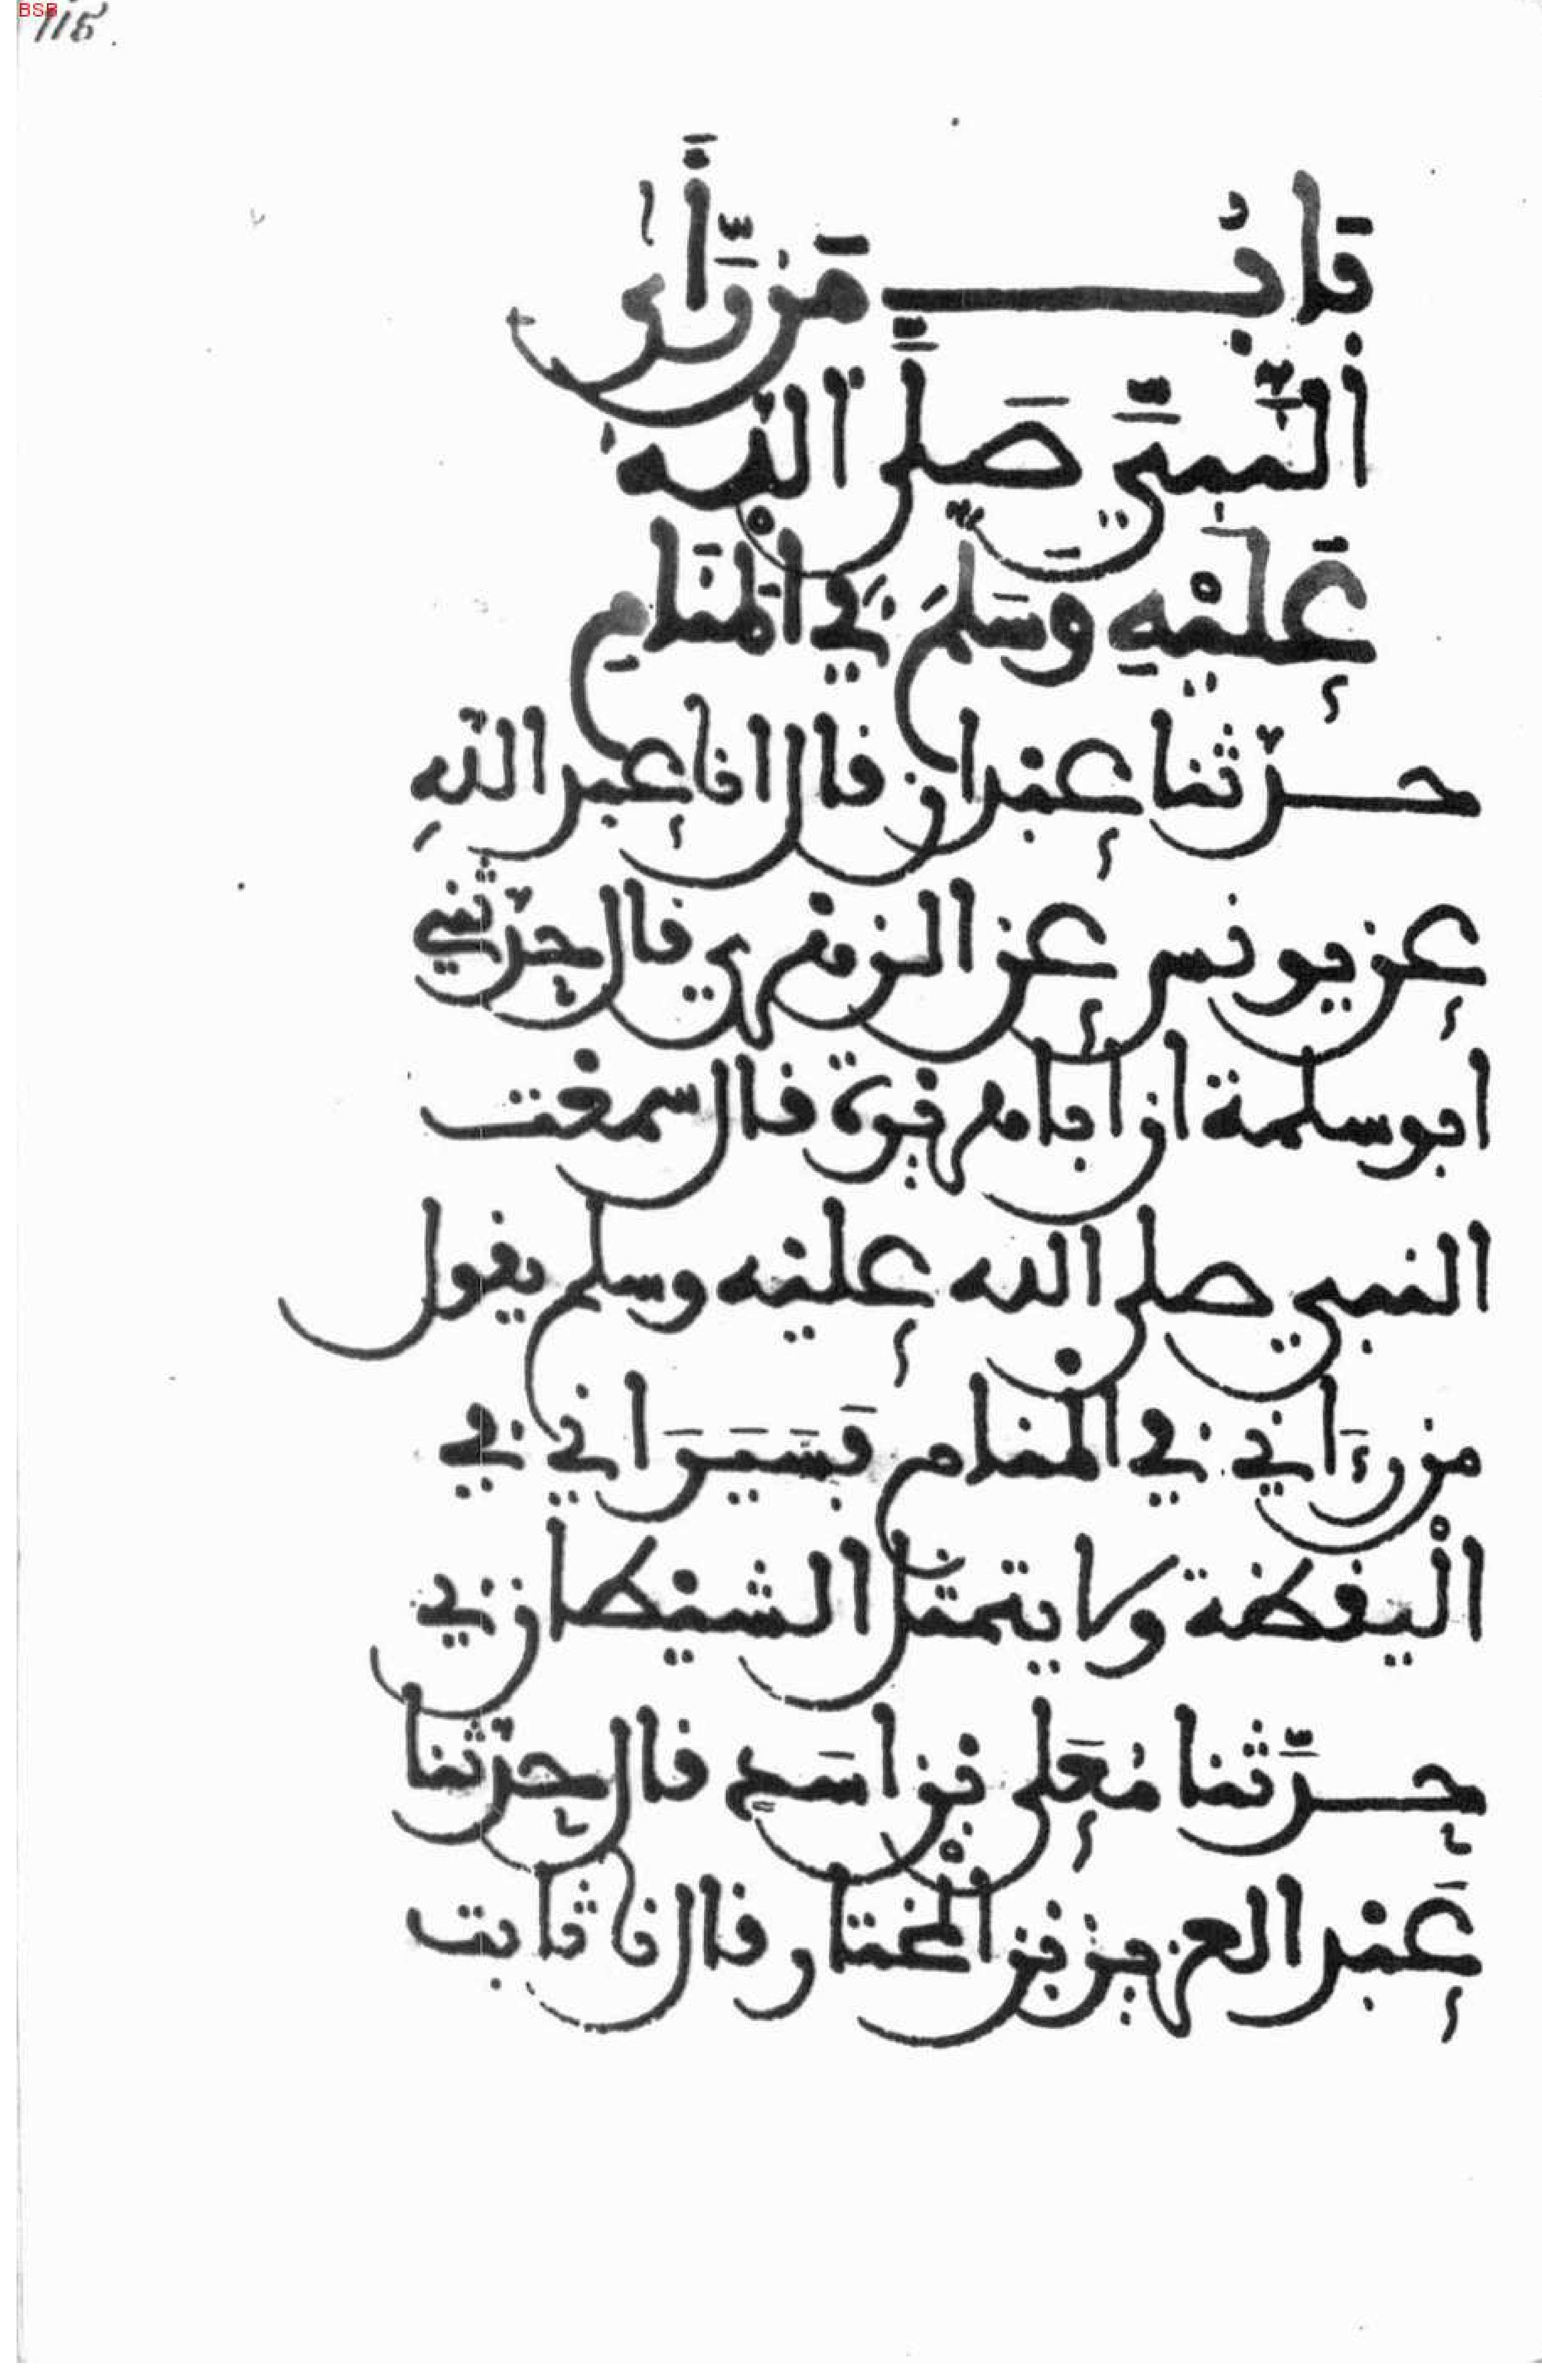 BSB
115.
بَابُ مَن رَّأَى
النَّبِيَّ صَلَّى اللهُ
عَلَيْهِ وَسَلَّمَ فِي الْمَنَامِ
حدّثنا عبدان قال انا عبد اللهِ
عن يونس عن الزهري قال حدّثني
ابو سلمة ان ابا هريرة قال سمعت
النبي صلى الله عليه وسلم يقول
من رءَاني في الْمنام فَسَيَرَاني في
الْيقظة ولا يتمثّل الشيطان بي
حدَّثنا مُعَلى بن اسَدٍ قال حدّثنا
عَبد العزيز بن الْمختار قال نا ثابت